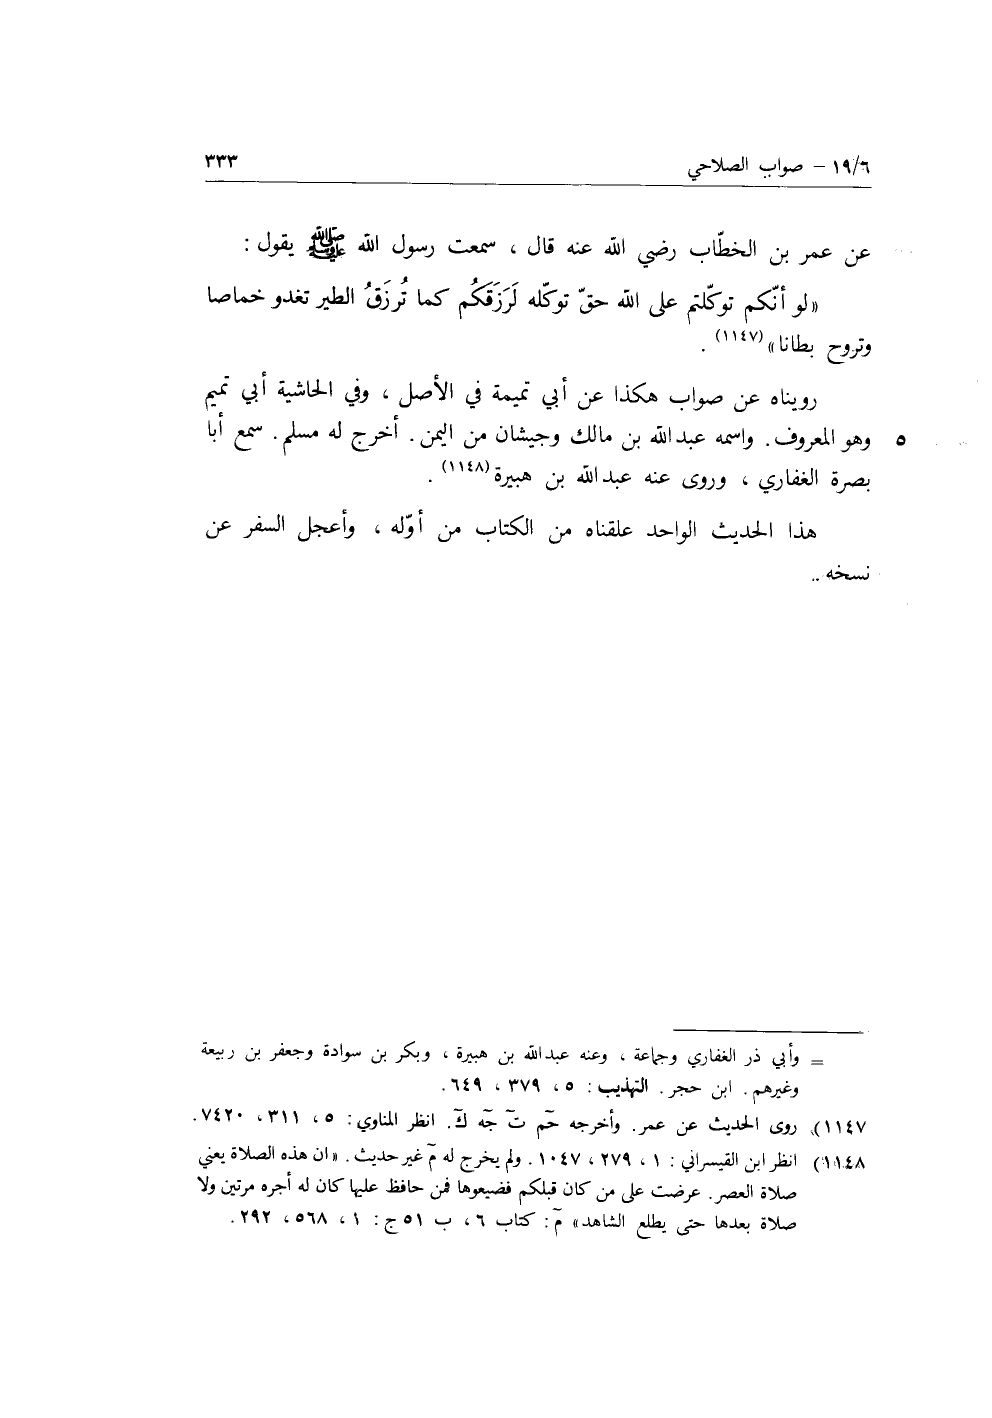 ١٩/٦ – صواب الصلاحي ٣٣٣
عن عمر بن الخطّاب رضي الله عنه قال ، سمعت رسول الله ﷺ يقول :
«لو أنّكم توكّلتم على الله حقّ توكّله لَرَزَقَكُم كما تُرزَقُ الطير تغدو خماصا
وتروح بطانا»(١١٤٧) .
رويناه عن صواب هكذا عن أبي تميمة في الأصل ، وفي الحاشية أبي تميم
٥ وهو المعروف. واسمه عبدالله بن مالك وجيشان من اليمن. أخرج له مسلم. سمع أبا
بصرة الغفاري ، وروى عنه عبدالله بن هبيرة(١١٤٨) .
هذا الحديث الواحد علقناه من الكتاب من أوّله ، وأعجل السفر عن
نسخه ..
= وأبي ذر الغفاري وجماعة ، وعنه عبدالله بن هبيرة ، وبكر بن سوادة وجعفر بن ربيعة
وغيرهم. ابن حجر. التهذيب : ٥ ، ٣٧٩ ، ٦٤٩.
١١٤٧) روى الحديث عن عمر. وأخرجه حمٓ تٓ جٓه كٓ. انظر المناوي : ٥ ، ٣١١ ، ٧٤٢٠.
١١٤٨) انظر ابن القيسراني : ١ ، ٢٧٩ ، ١٠٤٧. ولم يخرج له مٓ غير حديث. «ان هذه الصلاة يعني
صلاة العصر. عرضت على من كان قبلكم فضيعوها فمن حافظ عليها كان له أجره مرتين ولا
صلاة بعدها حتى يطلع الشاهد» مٓ : كتاب ٦ ، ب ٥١ ج : ١ ، ٥٦٨ ، ٢٩٢.